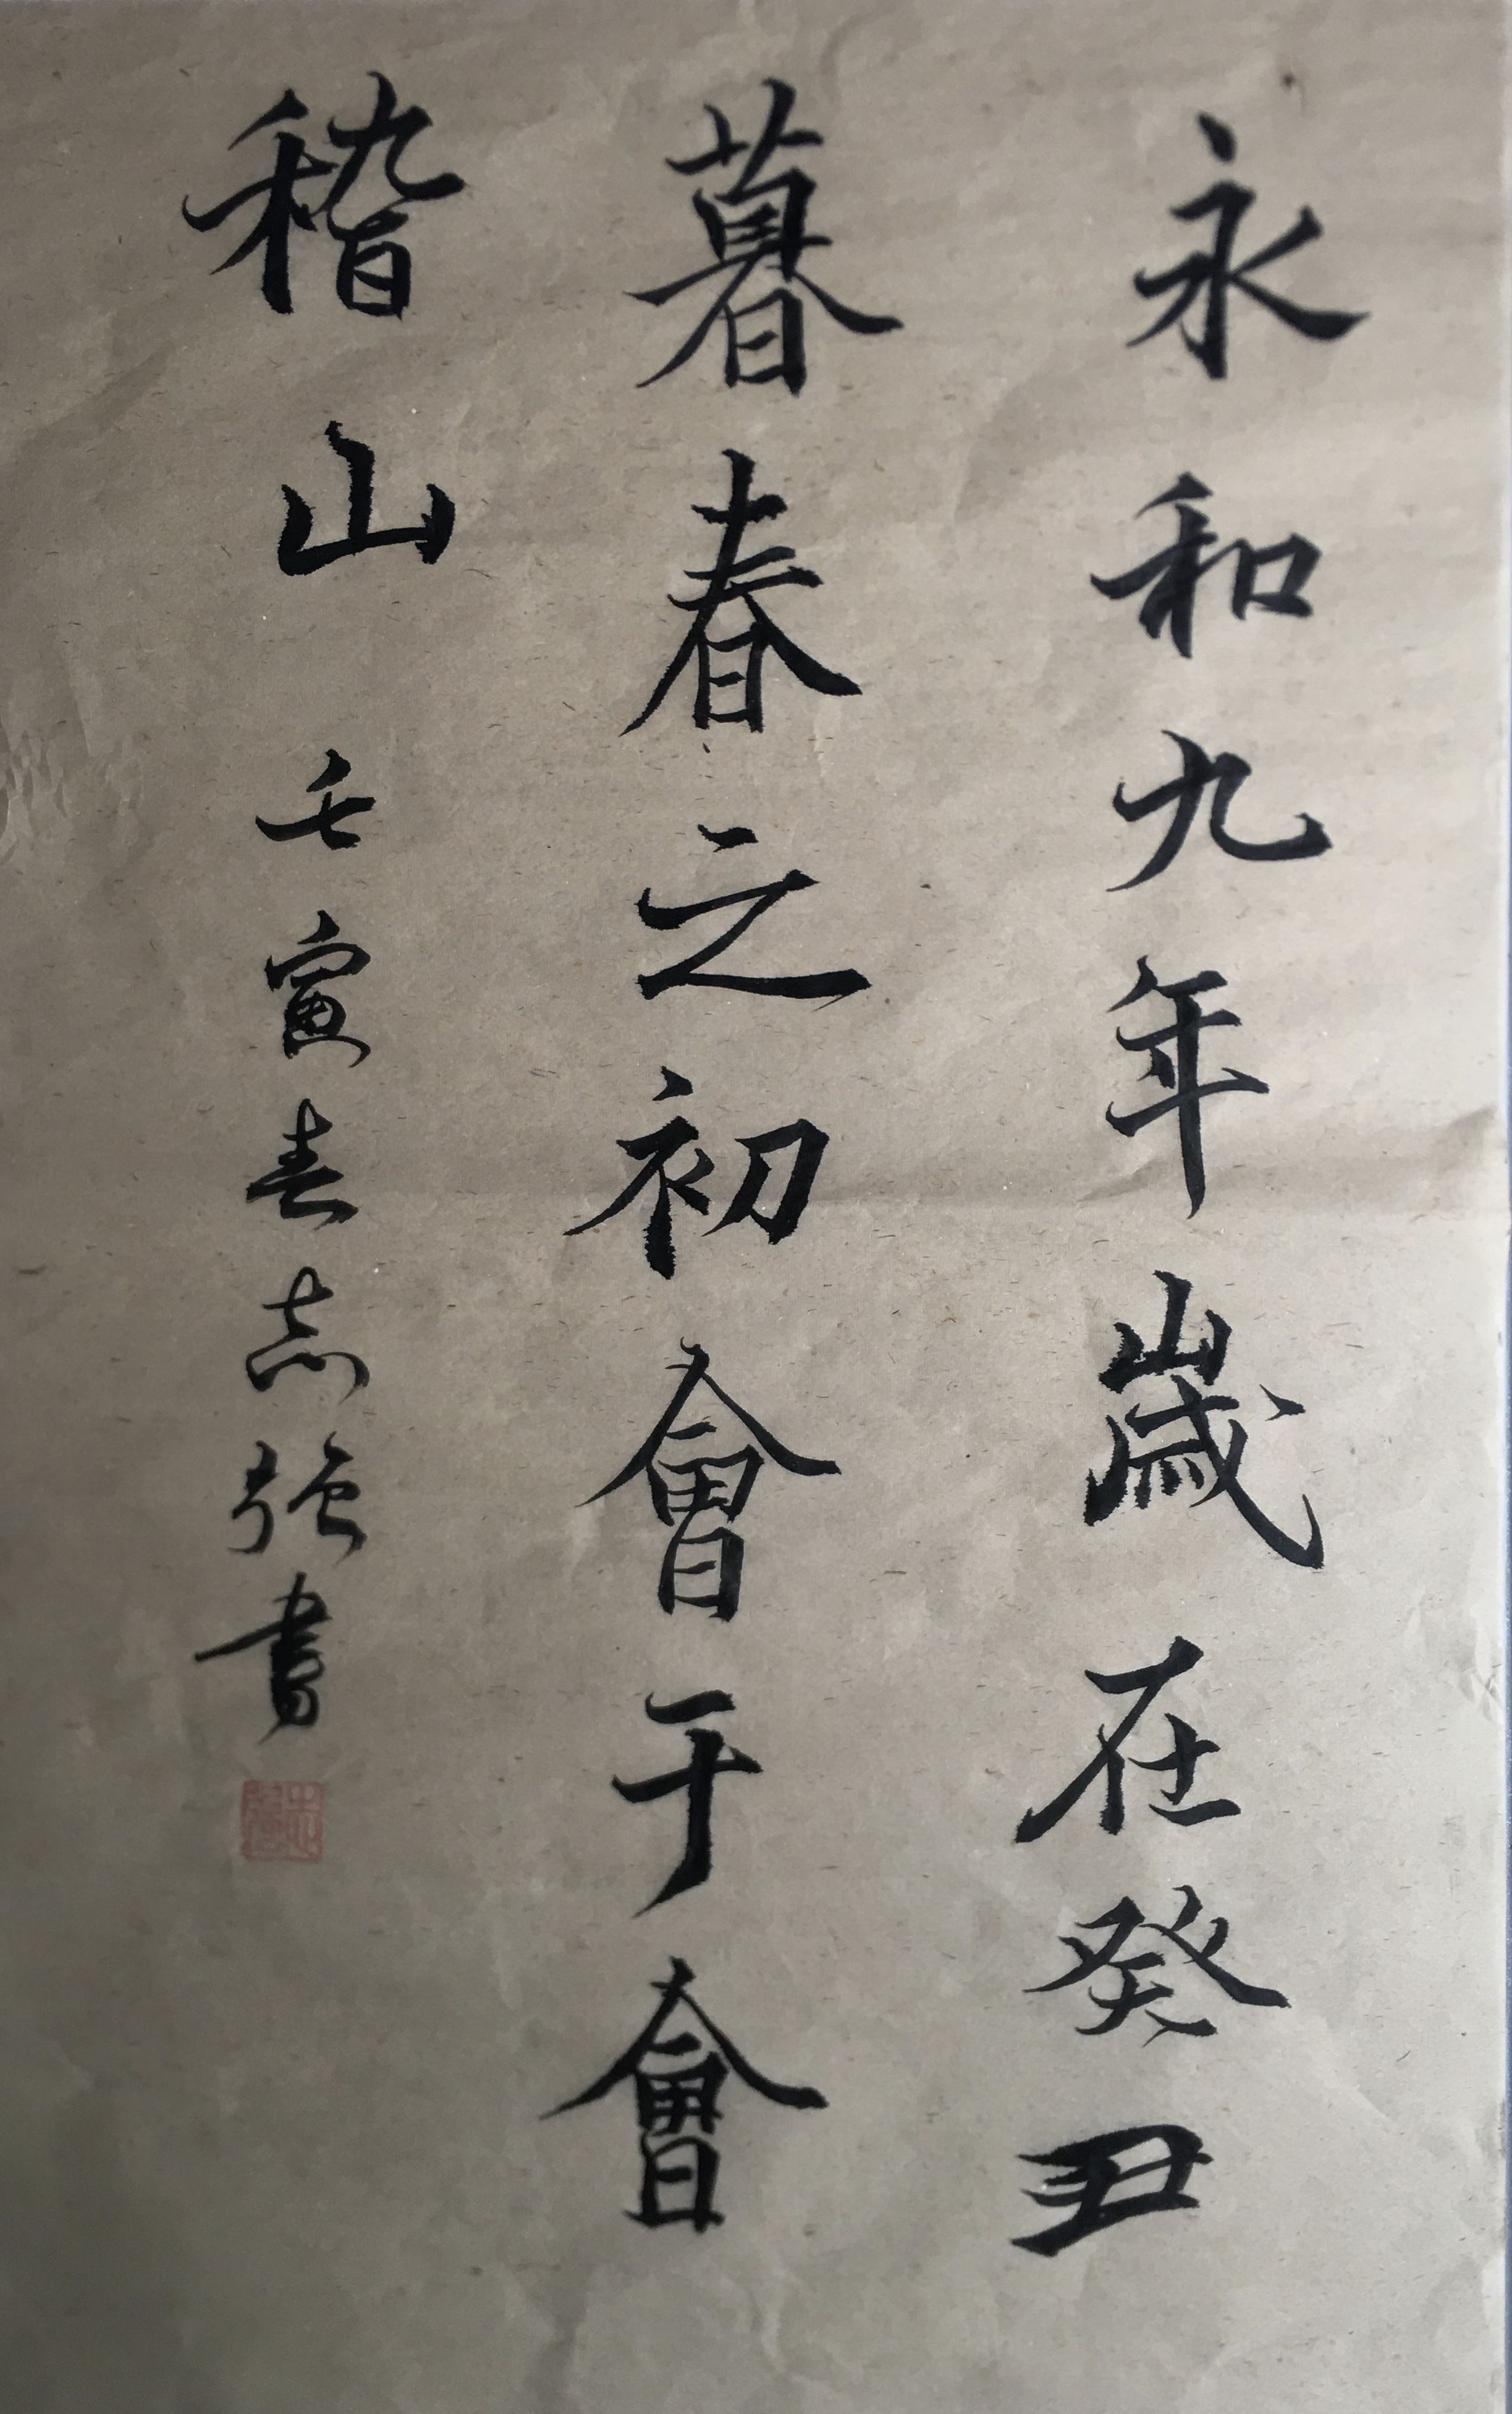 永和九年歲在癸丑
暮春之初會于會
稽山
壬寅春志強書